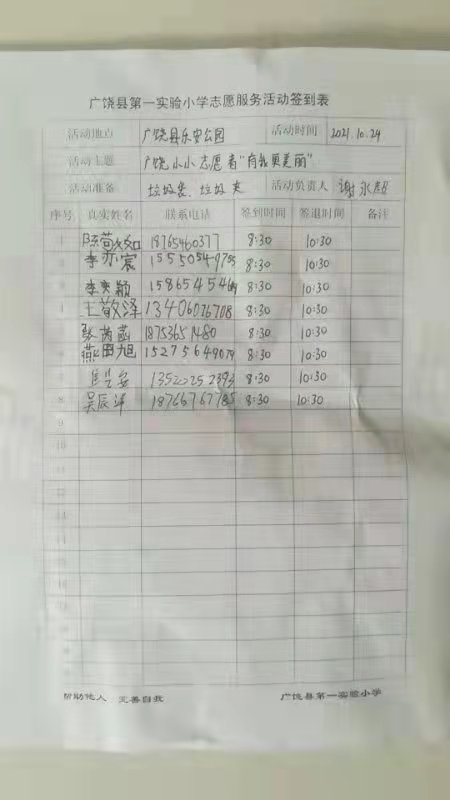 广饶县第一实验小学志愿服务活动签到表
活动地点 广饶县乐安公园 活动时间 2021.10.24
活动主题 广饶小小志愿者“有我更美丽”
活动准备 垃圾袋、垃圾夹 活动负责人 谢永超
序号 真实姓名 联系电话 签到时间 签退时间 备注
1 18765460377 8:30 10:30
2 李亦宸 15550549755 8:30 10:30
3 李奕颖 8:30 10:30
4 王敬泽 13406076708 8:30 10:30
5 张芮菡 18753651480 8:30 10:30
6 燕田旭 15275649079 8:30 10:30
7 8:30 10:30
8 吴辰泽 18766767785 8:30 10:30
9
10
11
12
13
14
15
16
17
18
帮助他人 完善自我 广饶县第一实验小学